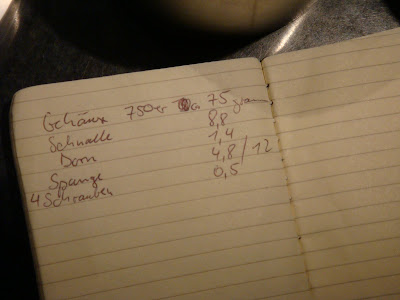 Gehäuse 750er ca 75 gramm
Schnalle 8,8
Dorn 1,4
Spange 4,8 / 12
4 Schrauben 0,5